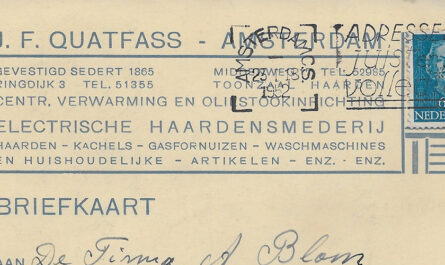 J. F. QUATFASS - AMSTERDAM
GEVESTIGD SEDERT 1865
RINGDIJK 3 TEL. 51355
TEL. 52965
TOONZAAL HAARDEN
CENTR. VERWARMING EN OLIESTOOKINRICHTING
ELECTRISCHE HAARDENSMEDERIJ
HAARDEN - KACHELS - GASFORNUIZEN - WASCHMASCHINES
EN HUISHOUDELIJKE - ARTIKELEN - ENZ. - ENZ.
AMSTERDAM CS
ADRESSE
juist
volle
NEDE
BRIEFKAART
AAN De Firma A Blom